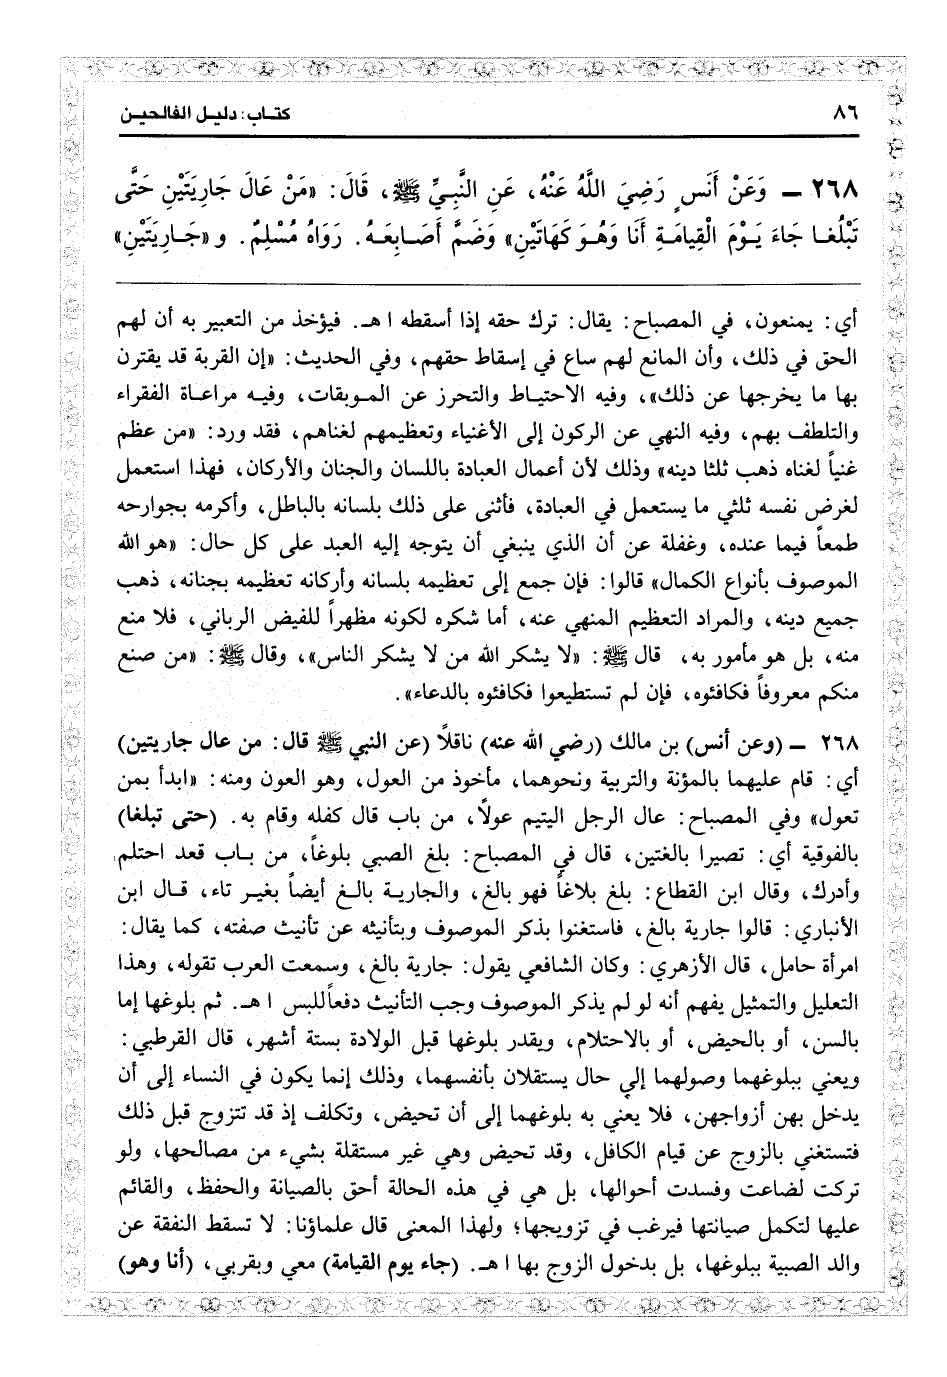 ٨٦
كتاب: دليل الفالحين
٢٦٨ ـ وَعَنْ أَنَسٍ رَضِيَ اللَّهُ عَنْهُ، عَنِ النَّبِيِّ ﷺ، قَالَ: «مَنْ عَالَ جَارِيَتَيْنِ حَتَّى
تَبْلُغَا جَاءَ يَوْمَ الْقِيامَةِ أَنَا وَهُوَ كَهَاتَيْنِ» وَضَمَّ أَصَابِعَهُ. رَوَاهُ مُسْلِمٌ. و «جَارِيَتَيْنِ»
أي: يمنعون، في المصباح: يقال: ترك حقه إذا أسقطه ا هـ. فيؤخذ من التعبير به أن لهم
الحق في ذلك، وأن المانع لهم ساع في إسقاط حقهم، وفي الحديث: «إن القربة قد يقترن
بها ما يخرجها عن ذلك»، وفيه الاحتياط والتحرز عن الموبقات، وفيه مراعاة الفقراء
والتلطف بهم، وفيه النهي عن الركون إلى الأغنياء وتعظيمهم لغناهم، فقد ورد: «من عظم
غنياً لغناه ذهب ثلثا دينه» وذلك لأن أعمال العبادة باللسان والجنان والأركان، فهذا استعمل
لغرض نفسه ثلثي ما يستعمل في العبادة، فأثنى على ذلك بلسانه بالباطل، وأكرمه بجوارحه
طمعاً فيما عنده، وغفلة عن أن الذي ينبغي أن يتوجه إليه العبد على كل حال: «هو الله
الموصوف بأنواع الكمال» قالوا: فإن جمع إلى تعظيمه بلسانه وأركانه تعظيمه بجنانه، ذهب
جميع دينه، والمراد التعظيم المنهي عنه، أما شكره لكونه مظهراً للفيض الرباني، فلا منع
منه، بل هو مأمور به، قال ﷺ: «لا يشكر الله من لا يشكر الناس»، وقال ﷺ: «من صنع
منكم معروفاً فكافئوه، فإن لم تستطيعوا فكافئوه بالدعاء».
٢٦٨ ـ (وعن أنس) بن مالك (رضي الله عنه) ناقلاً (عن النبي ﷺ قال: من عال جاريتين)
أي: قام عليهما بالمؤنة والتربية ونحوهما، مأخوذ من العول، وهو العون ومنه: «ابدأ بمن
تعول» وفي المصباح: عال الرجل اليتيم عولاً، من باب قال كفله وقام به. (حتى تبلغا)
بالفوقية أي: تصيرا بالغتين، قال في المصباح: بلغ الصبي بلوغاً، من باب قعد احتلم
وأدرك، وقال ابن القطاع: بلغ بلاغاً فهو بالغ، والجارية بالغ أيضاً بغير تاء، قال ابن
الأنباري: قالوا جارية بالغ، فاستغنوا بذكر الموصوف وبتأنيثه عن تأنيث صفته، كما يقال:
امرأة حامل، قال الأزهري: وكان الشافعي يقول: جارية بالغ، وسمعت العرب تقوله، وهذا
التعليل والتمثيل يفهم أنه لو لم يذكر الموصوف وجب التأنيث دفعاً للبس ا هـ. ثم بلوغها إما
بالسن، أو بالحيض، أو بالاحتلام، ويقدر بلوغها قبل الولادة بستة أشهر، قال القرطبي:
ويعني ببلوغهما وصولهما إلى حال يستقلان بأنفسهما، وذلك إنما يكون في النساء إلى أن
يدخل بهن أزواجهن، فلا يعني به بلوغهما إلى أن تحيض، وتكلف إذ قد تتزوج قبل ذلك
فتستغني بالزوج عن قيام الكافل، وقد تحيض وهي غير مستقلة بشيء من مصالحها، ولو
تركت لضاعت وفسدت أحوالها، بل هي في هذه الحالة أحق بالصيانة والحفظ، والقائم
عليها لتكمل صيانتها فيرغب في تزويجها؛ ولهذا المعنى قال علماؤنا: لا تسقط النفقة عن
والد الصبية ببلوغها، بل بدخول الزوج بها ا هـ. (جاء يوم القيامة) معي وبقربي، (أنا وهو)